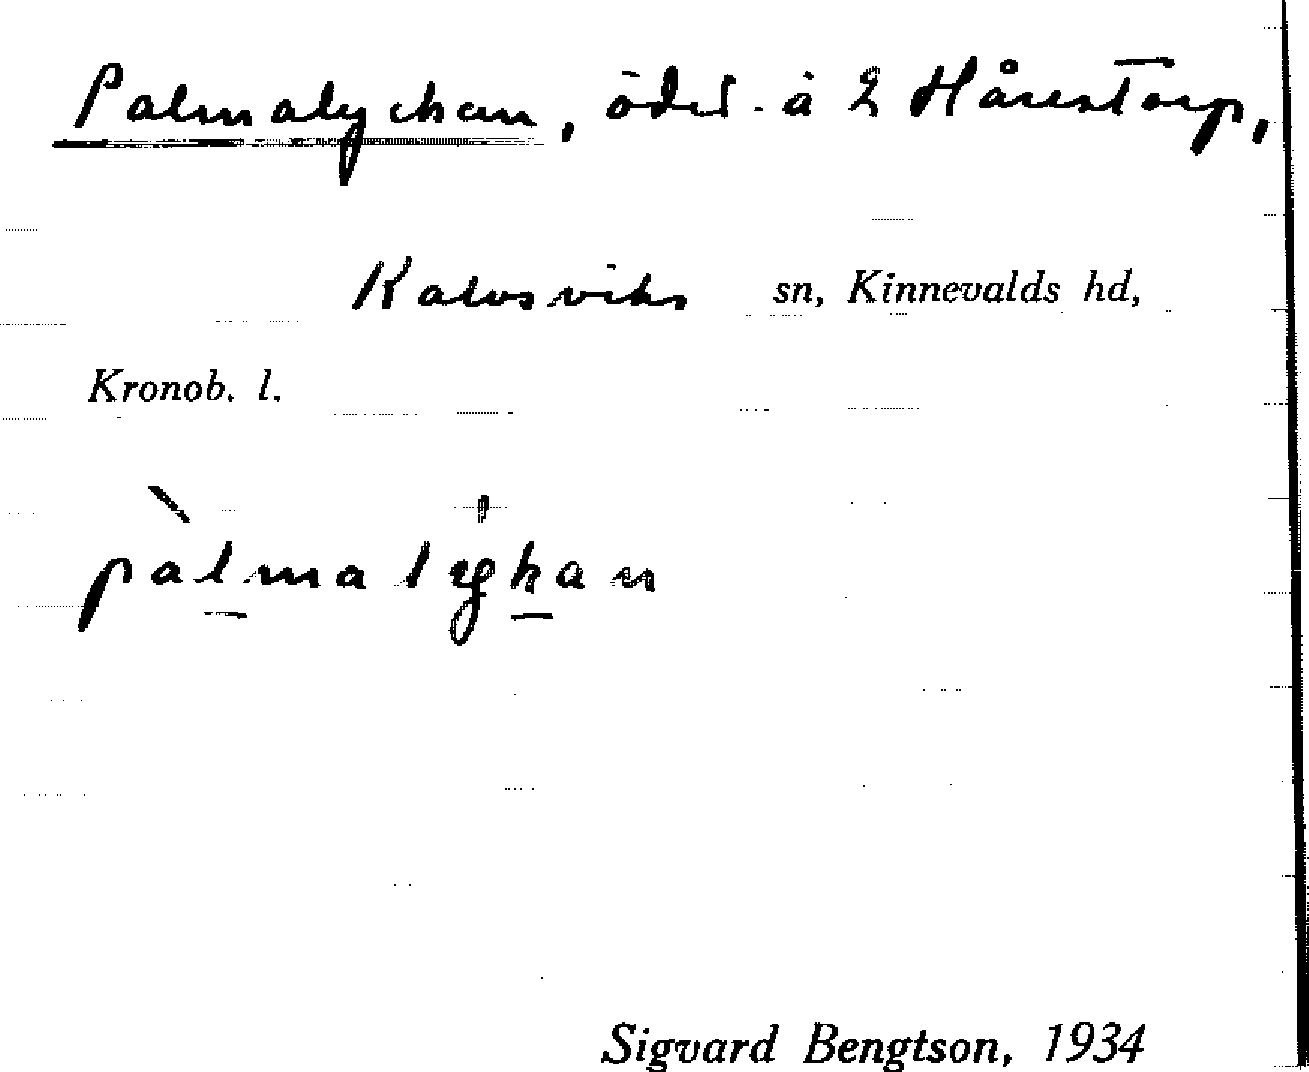 Palmalyckan, ödel. å 2 Hårestorp,
Kalvsviks sn, Kinnevalds hd,
Kronob. l.
pàlmalykan
Sigvard Bengtson, 1934